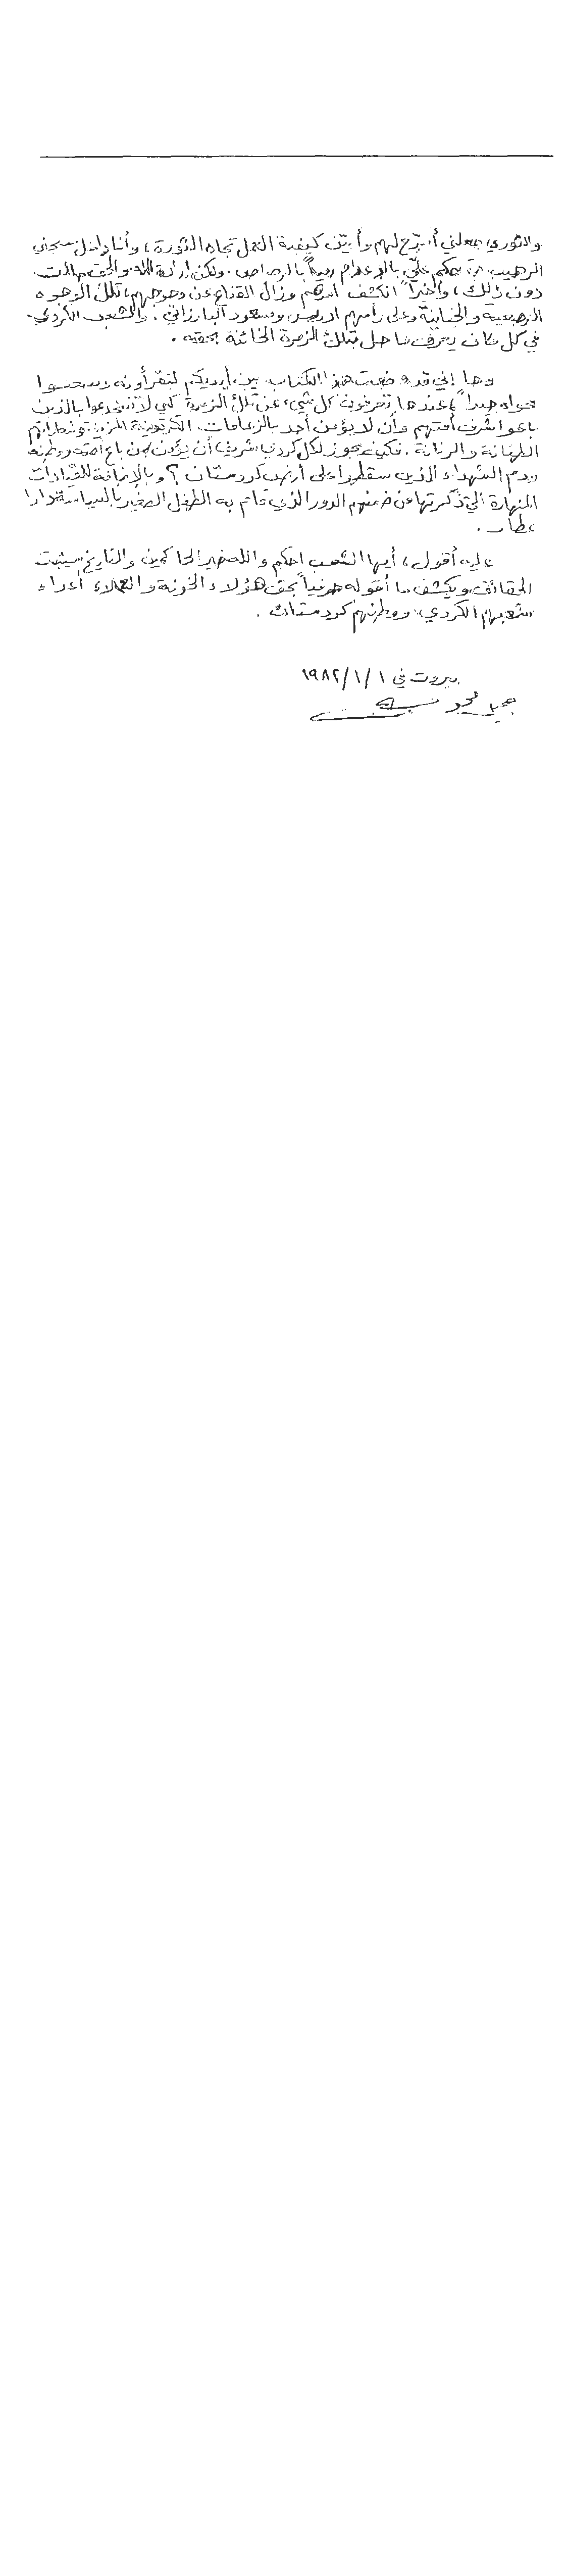 والثوري جعلني أشرح لهم وأبيّن كيفية العمل تجاه الثورة، وأنا داخل سجني
الرهيب. ثم حكم عليّ بالإعدام رمياً بالرصاص. ولكن إرادة الله والحق حالت
دون ذلك، وأخيراً انكشف أمرهم وزال القناع عن وجوههم، تلك الوجوه
الرجعية والخيانية وعلى رأسهم ادريس ومسعود البارزاني، والشعب الكردي
في كل مكان يعرف ما حل بتلك الزمرة الخائنة بحقه.
وها إني قد وضعت هذا الكتاب بين أيديكم لتقرأونه
جيداً، عندها تعرفون كل شيء عن تلك الزمرة كي لا تنخدعوا بالذين
باعوا شرف أمتهم وأن لا يؤمن أحد بالزعامات الكرتونية
الطنانة والرنانة. فكيف يجوز لكل كردي شريف أن يؤمن بمن باع أمته ووطنه
ودم الشهداء الذين سقطوا على أرض كردستان؟ وبالإضافة للقيادات
المنهارة التي ذكرتها من ضمنهم الدور الذي قام به الطفل الصغير بالسياسة دارا
عطار.
عليه أقول، أيها الشعب احكم والله خير الحاكمين والتاريخ سيثبت
الحقائق ويكشف ما أقوله حرفياً بحق هؤلاء الخونة والعملاء أعداء
شعبهم الكردي ووطنهم كردستان.
بيروت في ١/١/١٩٨٢
جميل محو